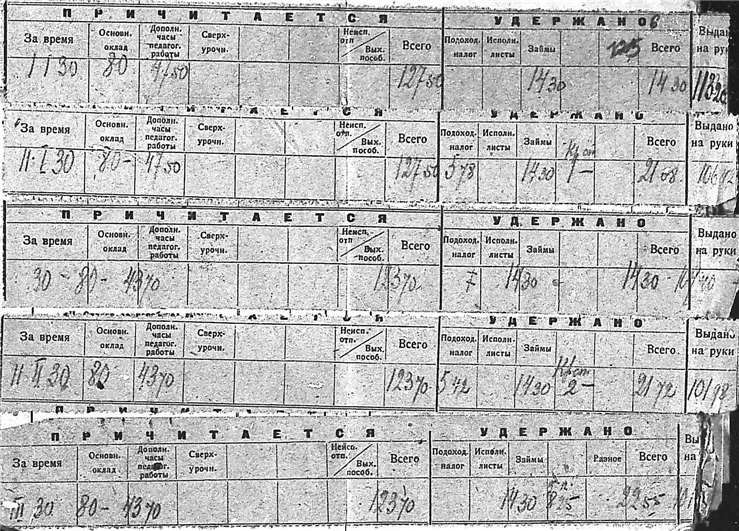 ПРИЧИТАЕТСЯ УДЕРЖАНО
За время Основн. оклад Дополн. часы педагог. работы Сверх-урочн. Неисп. отп. Вых. пособ. Всего Подоход. налог Исполн. листы Займы Всего Выдано на руки
I I 30 80 47 50 127 50 14 30 14 30
ЧИТАЕТСЯ УДЕРЖАНО
За время Основн. оклад Дополн. часы педагог. работы Сверх-урочн. Неисп. отп. Вых. пособ. Всего Подоход. налог Исполн. листы Займы Всего Выдано на руки
II I 30 80- 47 50 127 50 5 78 14 30 1- 21 08
ПРИЧИТАЕТСЯ УДЕРЖАНО
За время Основн. оклад Дополн. часы педагог. работы Сверх-урочн. Неисп. отп Вых. пособ. Всего Подоход. налог Исполн. листы Займы Всего Выдано на руки
30 - 80 - 43 70 123 70 7 14 30 14 30
УДЕРЖАНО
За время Основн. оклад Дополн. часы педагог. работы Сверх-урочн. Неисп. отп. Вых. пособ. Всего Подоход. налог Исполн. листы Займы Всего Выдано на руки
II II 30 80- 43 70 123 70 5 42 14 30 2- 21 72 101 98
ПРИЧИТАЕТСЯ УДЕРЖАНО
За время Основн. оклад Дополн. часы педагог. работы Сверх-урочн. Неисп. отп. Вых. пособ. Всего Подоход. налог Исполн. листы Займы Разное Всего Вы на
III 30 80- 43 70 123 70 14 30 8 25 22 55